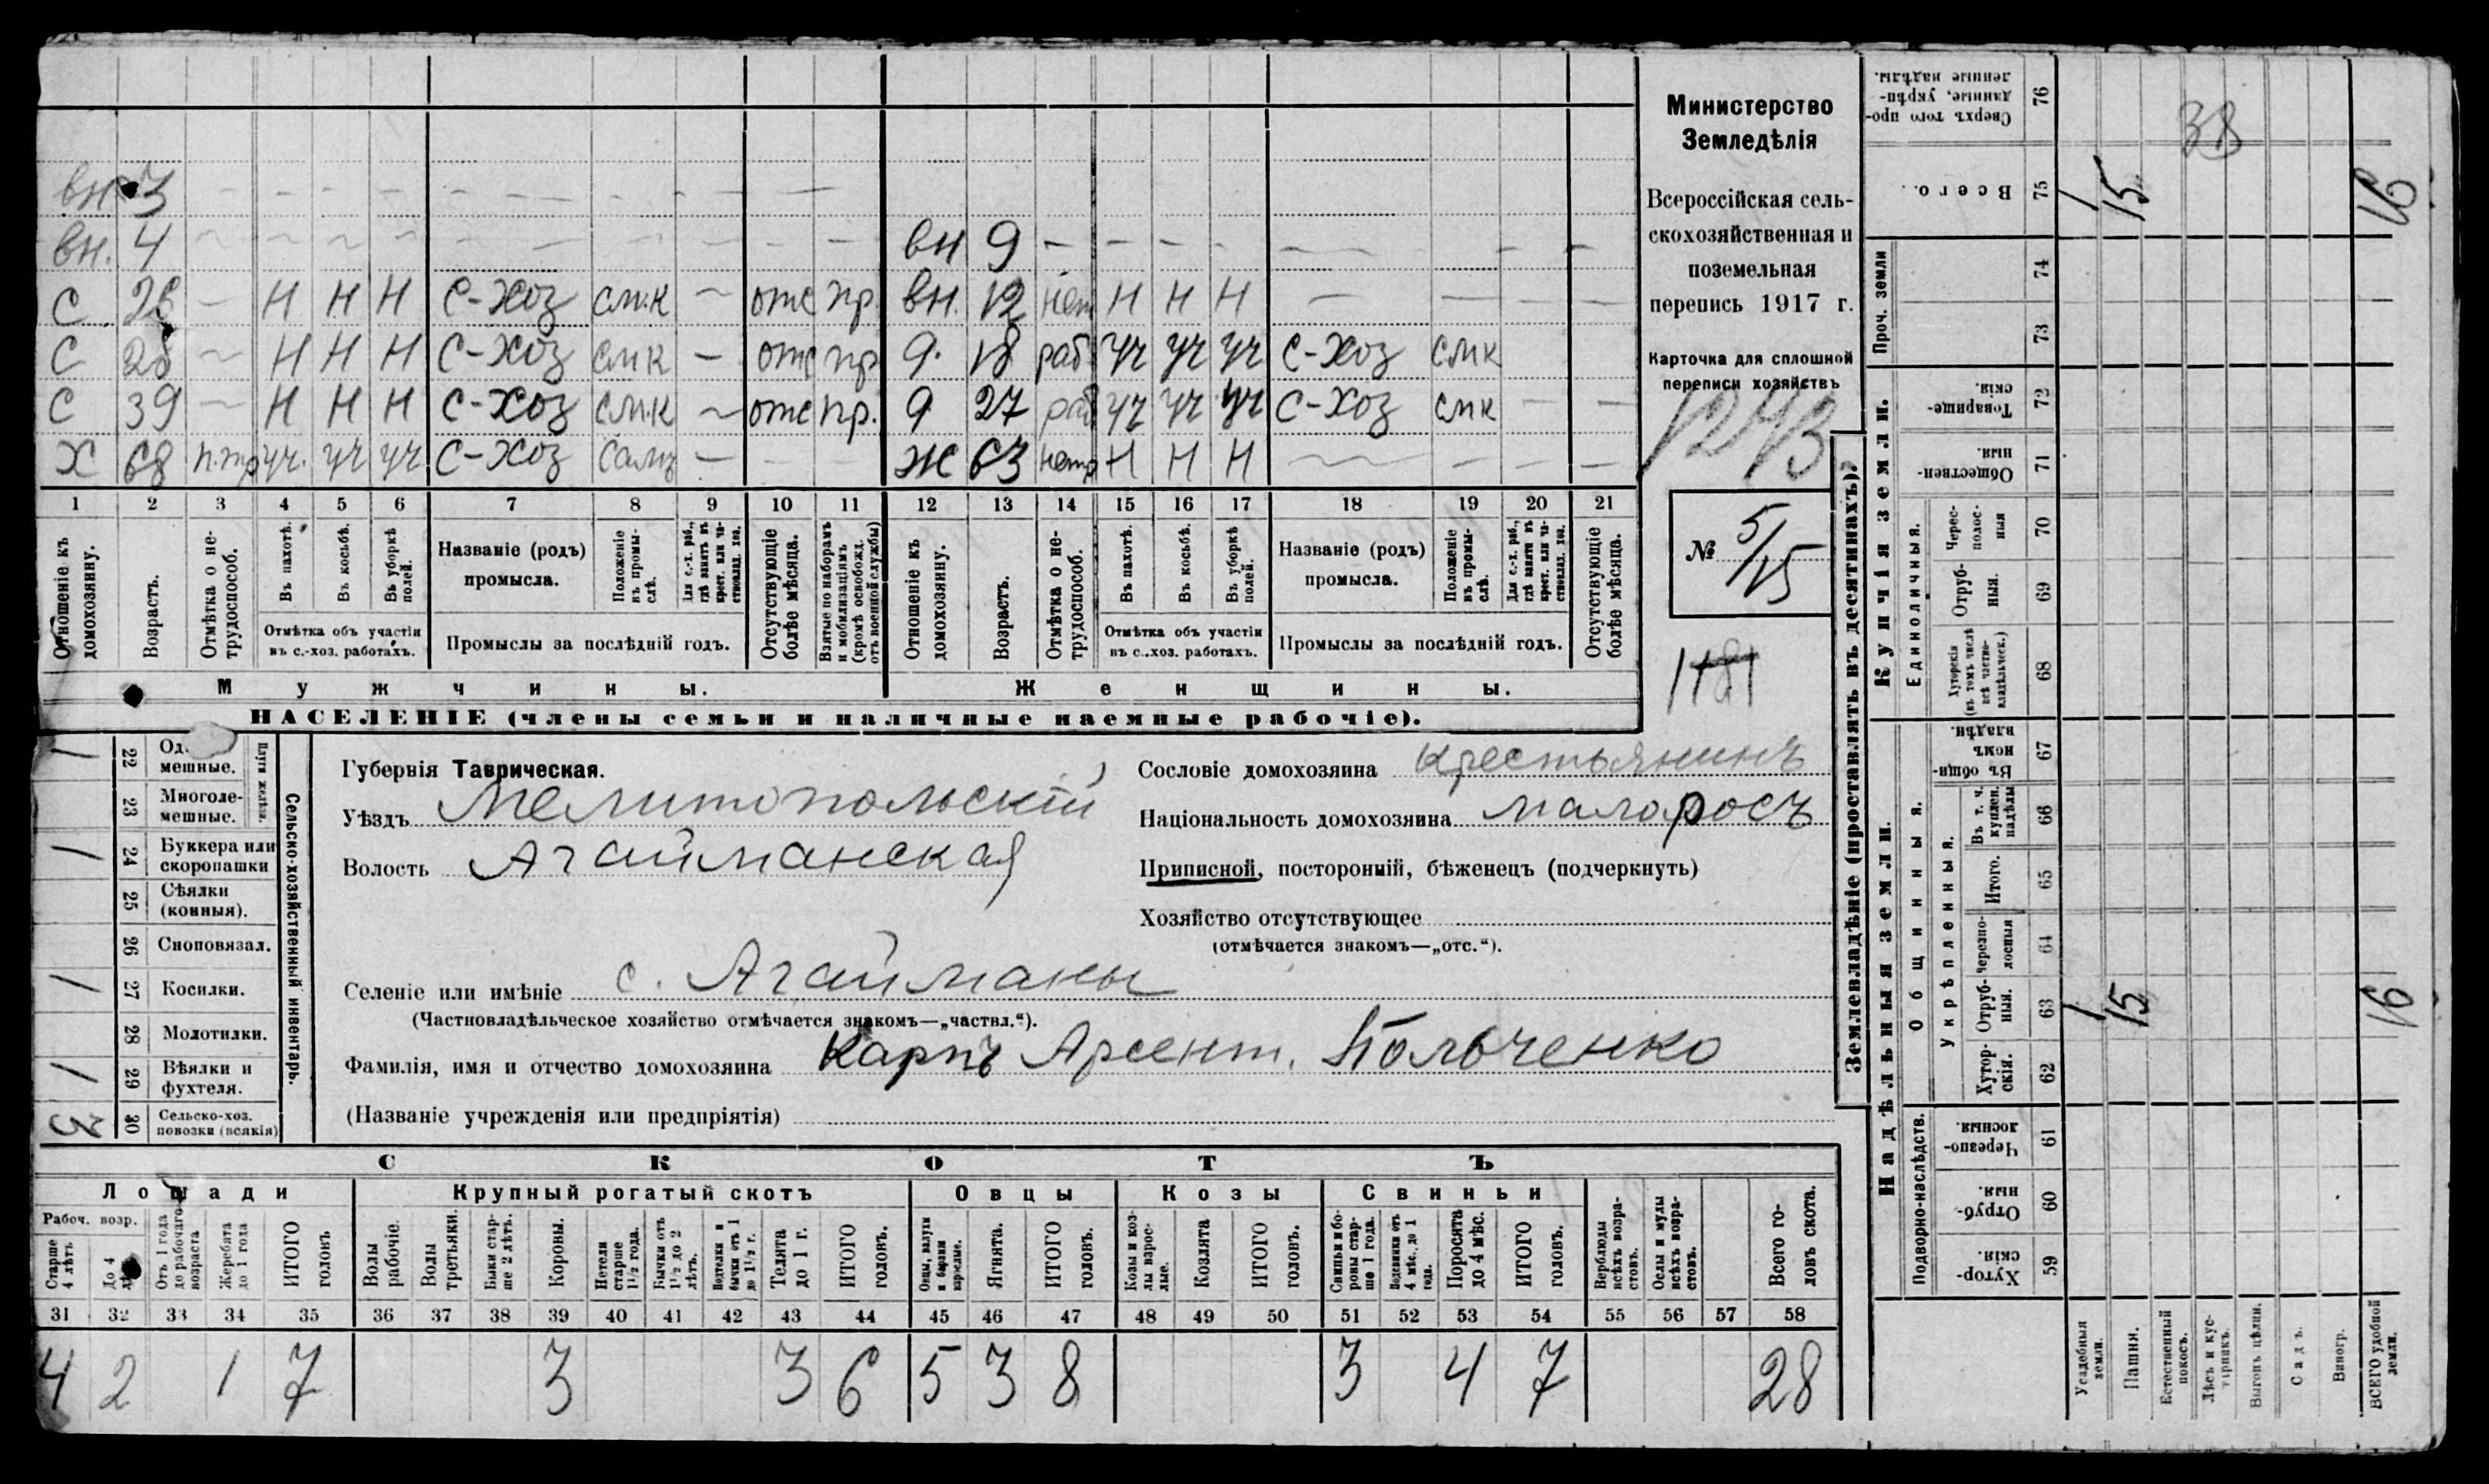 вн 3 - - - - - - - - -
вн. 4 - - - - - - - - - вн 9 - - - - - - - -
С 26 - Н Н Н С-Хоз см.к - отс пр. вн. 12 нет Н Н Н - - - -
С 28 - Н Н Н С-Хоз смк - отс пр д. 18 раб уч уч уч С-Хоз смк
С 39 - Н Н Н С-Хоз см.к - отс пр. д 27 раб уч уч уч С-Хоз смк - -
Х 68 уч. уч уч С-Хоз - - - Ж 63 Н Н Н - - - -
1 2 3 4 5 6 7 8 9 10 11 12 13 14 15 16 17 18 19 20 21
Отношеніе къ домохозяину.
Возрастъ.
Отмѣтка о не-трудоспособ.
Въ пахотѣ.
Въ косьбѣ.
Въ уборкѣ полей.
Отмѣтка объ участіи въ с.-хоз. работахъ.
Названіе (родъ) промысла.
Положеніе въ промы-слѣ.
Для с.-х. раб., гдѣ занятъ въ крест. или ча-стновлад. хоз.
Промыслы за послѣдній годъ.
Отсутствующіе болѣе мѣсяца.
Взятые по наборамъ и мобилизаціямъ (кромѣ освобожд. отъ военной службы)
Отношеніе къ домохозяину.
Возрастъ.
Отмѣтка о не-трудоспособ.
Въ пахотѣ.
Въ косьбѣ.
Въ уборкѣ полей.
Отмѣтка объ участіи въ с.-хоз. работахъ.
Названіе (родъ) промысла.
Положеніе въ промы-слѣ.
Для с.-х. раб., гдѣ заняты въ крест. или ча-стновлад. хоз.
Промыслы за послѣдній годъ.
Отсутствующіе болѣе мѣсяца.
Мужчины.
Женщины.
НАСЕЛЕНІЕ (члены семьи и наличные наемные рабочіе).
Министерство
Земледѣлія
Всероссійская сель-
скохозяйственная и
поземельная
перепись 1917 г.
Карточка для сплошной
переписи хозяйствъ
1243
№ 5/15
1181
1 22 мешные.
23 Многоле-мешные.
Плуги желѣзн.
1 24 Буккера или скоропашки
25 Сѣялки (конныя).
26 Сноповязал.
1 27 Косилки.
28 Молотилки.
1 29 Вѣялки и фухтеля.
3 30 Сельско-хоз. повозки (всякія)
Сельско-хозяйственный инвентарь.
Губернія Таврическая.
Уѣздъ Мелитопольскій
Волость Агайманская
Селеніе или имѣніе с. Агайманы
(Частновладѣльческое хозяйство отмѣчается знакомъ—„частвл.“).
Фамилія, имя и отчество домохозяина Карпъ Арсент. Польченко
(Названіе учрежденія или предпріятія)
Сословіе домохозяина крестьянинъ
Національность домохозяина малоросъ
Приписной, посторонній, бѣженецъ (подчеркнуть)
Хозяйство отсутствующее
(отмѣчается знакомъ—„отс.“).
СКОТЪ
Лошади Крупный рогатый скотъ Овцы Козы Свиньи
Рабоч. возр.
Старше 4 лѣтъ
До 4
Отъ 1 года до рабочаго возраста
Жеребята до 1 года
ИТОГО головъ
Волы рабочіе.
Волы третьяки.
Быки стар-ше 2 лѣтъ.
Коровы.
Нетели старше 1½ года.
Бычки отъ 1½ до 2 лѣтъ.
Подтелки и бычки отъ 1 до 1½ г.
Телята до 1 г.
ИТОГО головъ.
Овцы, валухи и бараны взрослые.
Ягнята.
ИТОГО головъ.
Козы и коз-лы взрос-лые.
Козлята
ИТОГО головъ.
Свиньи и бо-ровы стар-ше 1 года.
Подсвинки отъ 4 мѣс. до 1 года.
Поросята до 4 мѣс.
ИТОГО головъ.
Верблюды всѣхъ возра-стовъ.
Ослы и мулы всѣхъ возра-стовъ.
Всего го-ловъ скота.
31 32 33 34 35 36 37 38 39 40 41 42 43 44 45 46 47 48 49 50 51 52 53 54 55 56 57 58
4 2 1 7 3 3 6 5 3 8 3 4 7 28
Землевладѣніе (проставлять въ десятинахъ).
Надѣльныя земли.
Купчія земли.
Проч. земли
Подворно-наслѣдств.
Общинныя.
Укрѣпленныя.
Единоличныя.
59 Хутор-скія.
60 Отруб-ныя.
61 Черезпо-лосныя.
62 Хутор-скія.
63 Отруб-ныя.
64 Черезпо-лосныя
65 Итого.
66 Въ т. ч. куплен. надѣлы
67 Въ общин-номъ владѣн.
68 Хуторскія (въ томъ числѣ всѣ частно-владѣльческ.)
69 Отруб-ныя.
70 Черес-полос-ныя
71 Обществен-ныя.
72 Товарище-скія.
73
74
75 Всего.
76 Сверхъ того про-данные, укрѣп-ленные надѣлы.
Усадебныя земли.
Пашня.
Естественный покосъ.
Лѣсъ и кус-тарникъ.
Выгонъ цѣлин.
Садъ.
Виногр.
ВСЕГО удобной земли.
1 15 16
1 15 16
38